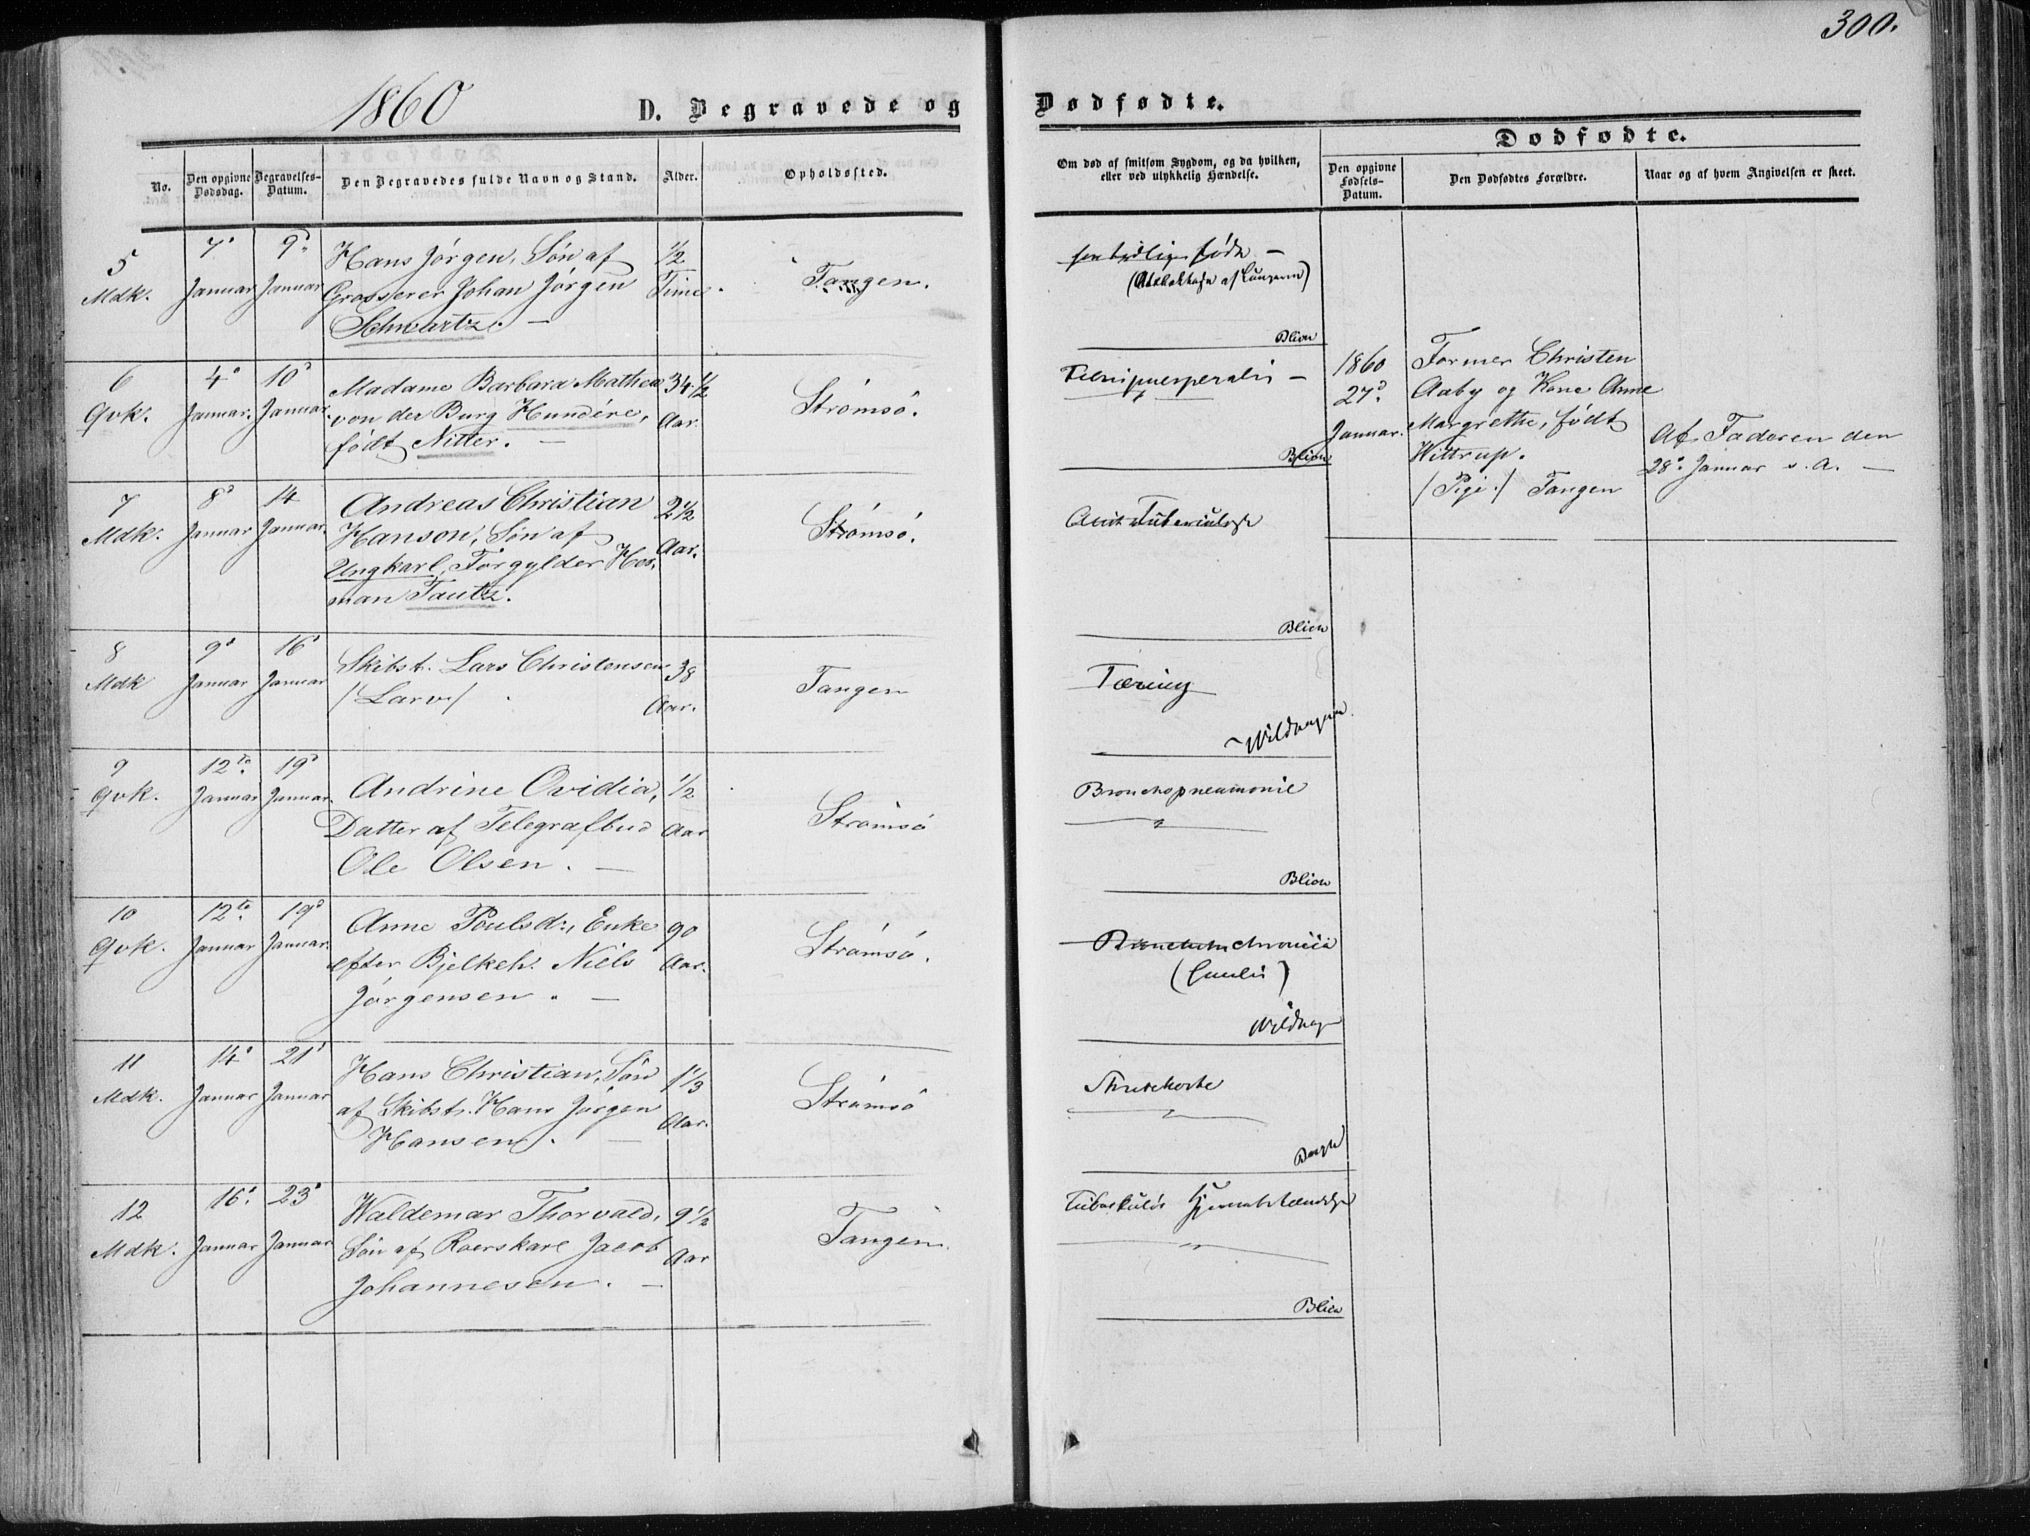 300.
1860
D. Begravede og Dødfødte.
No.
Den opgivne Dødsdag.
Begravelses-Datum.
Den Begravedes fulde Navn og Stand.
Alder.
Opholdssted.
Om død af smitsom Sygdom, og da hvilken,
eller ved ulykkelig Hændelse.
Dødfødte.
Den opgivne Fødsels-Datum.
Den Dødfødtes Forældre.
Naar og af hvem Angivelsen er skeet.
5 Mdk.
7d Januar
9d Januar
Hans Jörgen, Sön af
Grosserer Johan Jörgen
Schwartz. —
1/2 Time
Tangen.
født —
Blich
6 Qvk.
4d Januar.
10d Januar
Madame Barbara Mathea
von der Burg Hundére,
födt Nitter. —
34 1/2 Aar.
Strömsö.
puerperalis —
Blich
7 Mdk.
8d Januar
14 Januar.
Andreas Christian
Hanson, Sön af
Ungkarl, Forgylder Her-
man Tautz.
2 1/2 Aar.
Strömsö.
Acut Tuberculose
Blich
8 Mdk
9d Januar
16d Januar
Skibst. Lars Christensen
/Larv/
38 Aar.
Tangen
Tæring
Wildhagen
9 Qvk.
12te Januar
19d Januar.
Andrine Ovidia,
Datter af Telegrafbud
Ole Olsen. —
1/2 Aar
Strömsö
Bronchopneumonie
Blich
10 Qvk.
12te Januar
19d Januar.
Anne Poulsd:, Enke
efter Bjelkeh. Niels
Jörgensen. —
90 Aar.
Strömsö.
chronica
Wildhagen
11 Mdk.
14d Januar
21d Januar
Hans Christian, Sön
af Skibstr. Hans Jörgen
Hansen. —
1 1/3 Aar.
Strömsö
Strubehoste
12 Mdk.
16d Januar
23d Januar
Waldemar Thorvald,
Sön af Roerskarl Jacob
Johannesen. —
9 1/2 Aar
Tangen.
Tuberkuløs Hjernebetændelse
Blich
1860
27d
Januar.
Former Christen
Aaby og Kone Anne
Margrethe, födt
Wittrup.
/Pige./ Tangen
Af Faderen den
28d Januar s. A. —